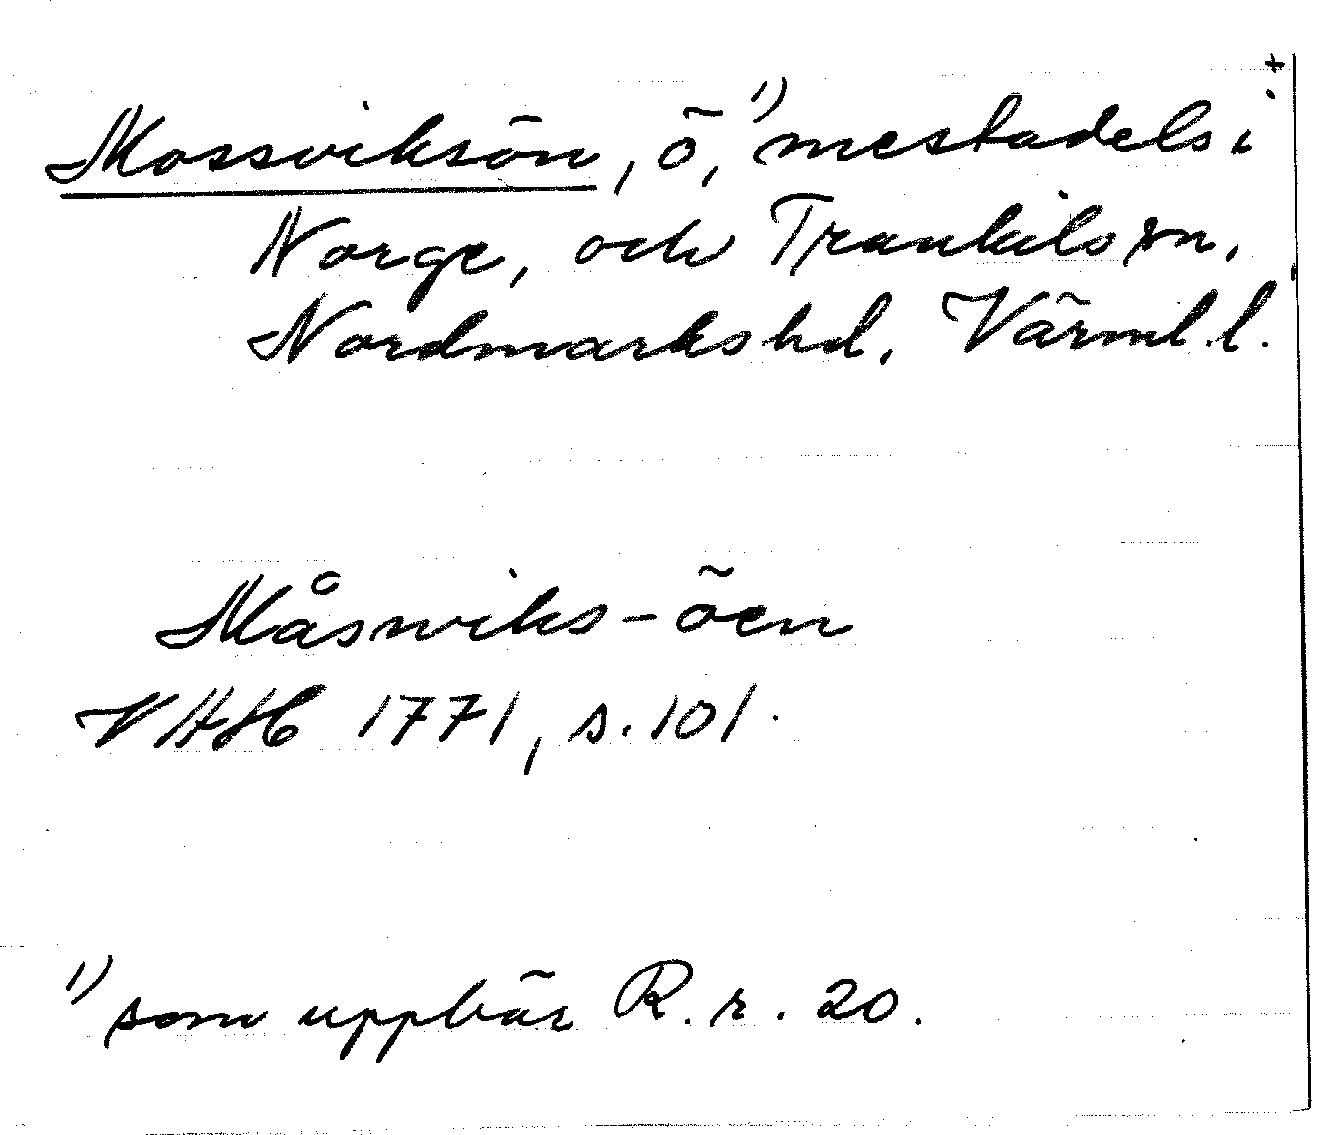 +
Mossviksön, ö,¹⁾ mestadels i
Norge, och Trankils sn,
Nordmarks hd, Värml. l.
Måswiks-öen
VHH 1771, s. 101.
¹⁾ som uppbär R. r. 20.